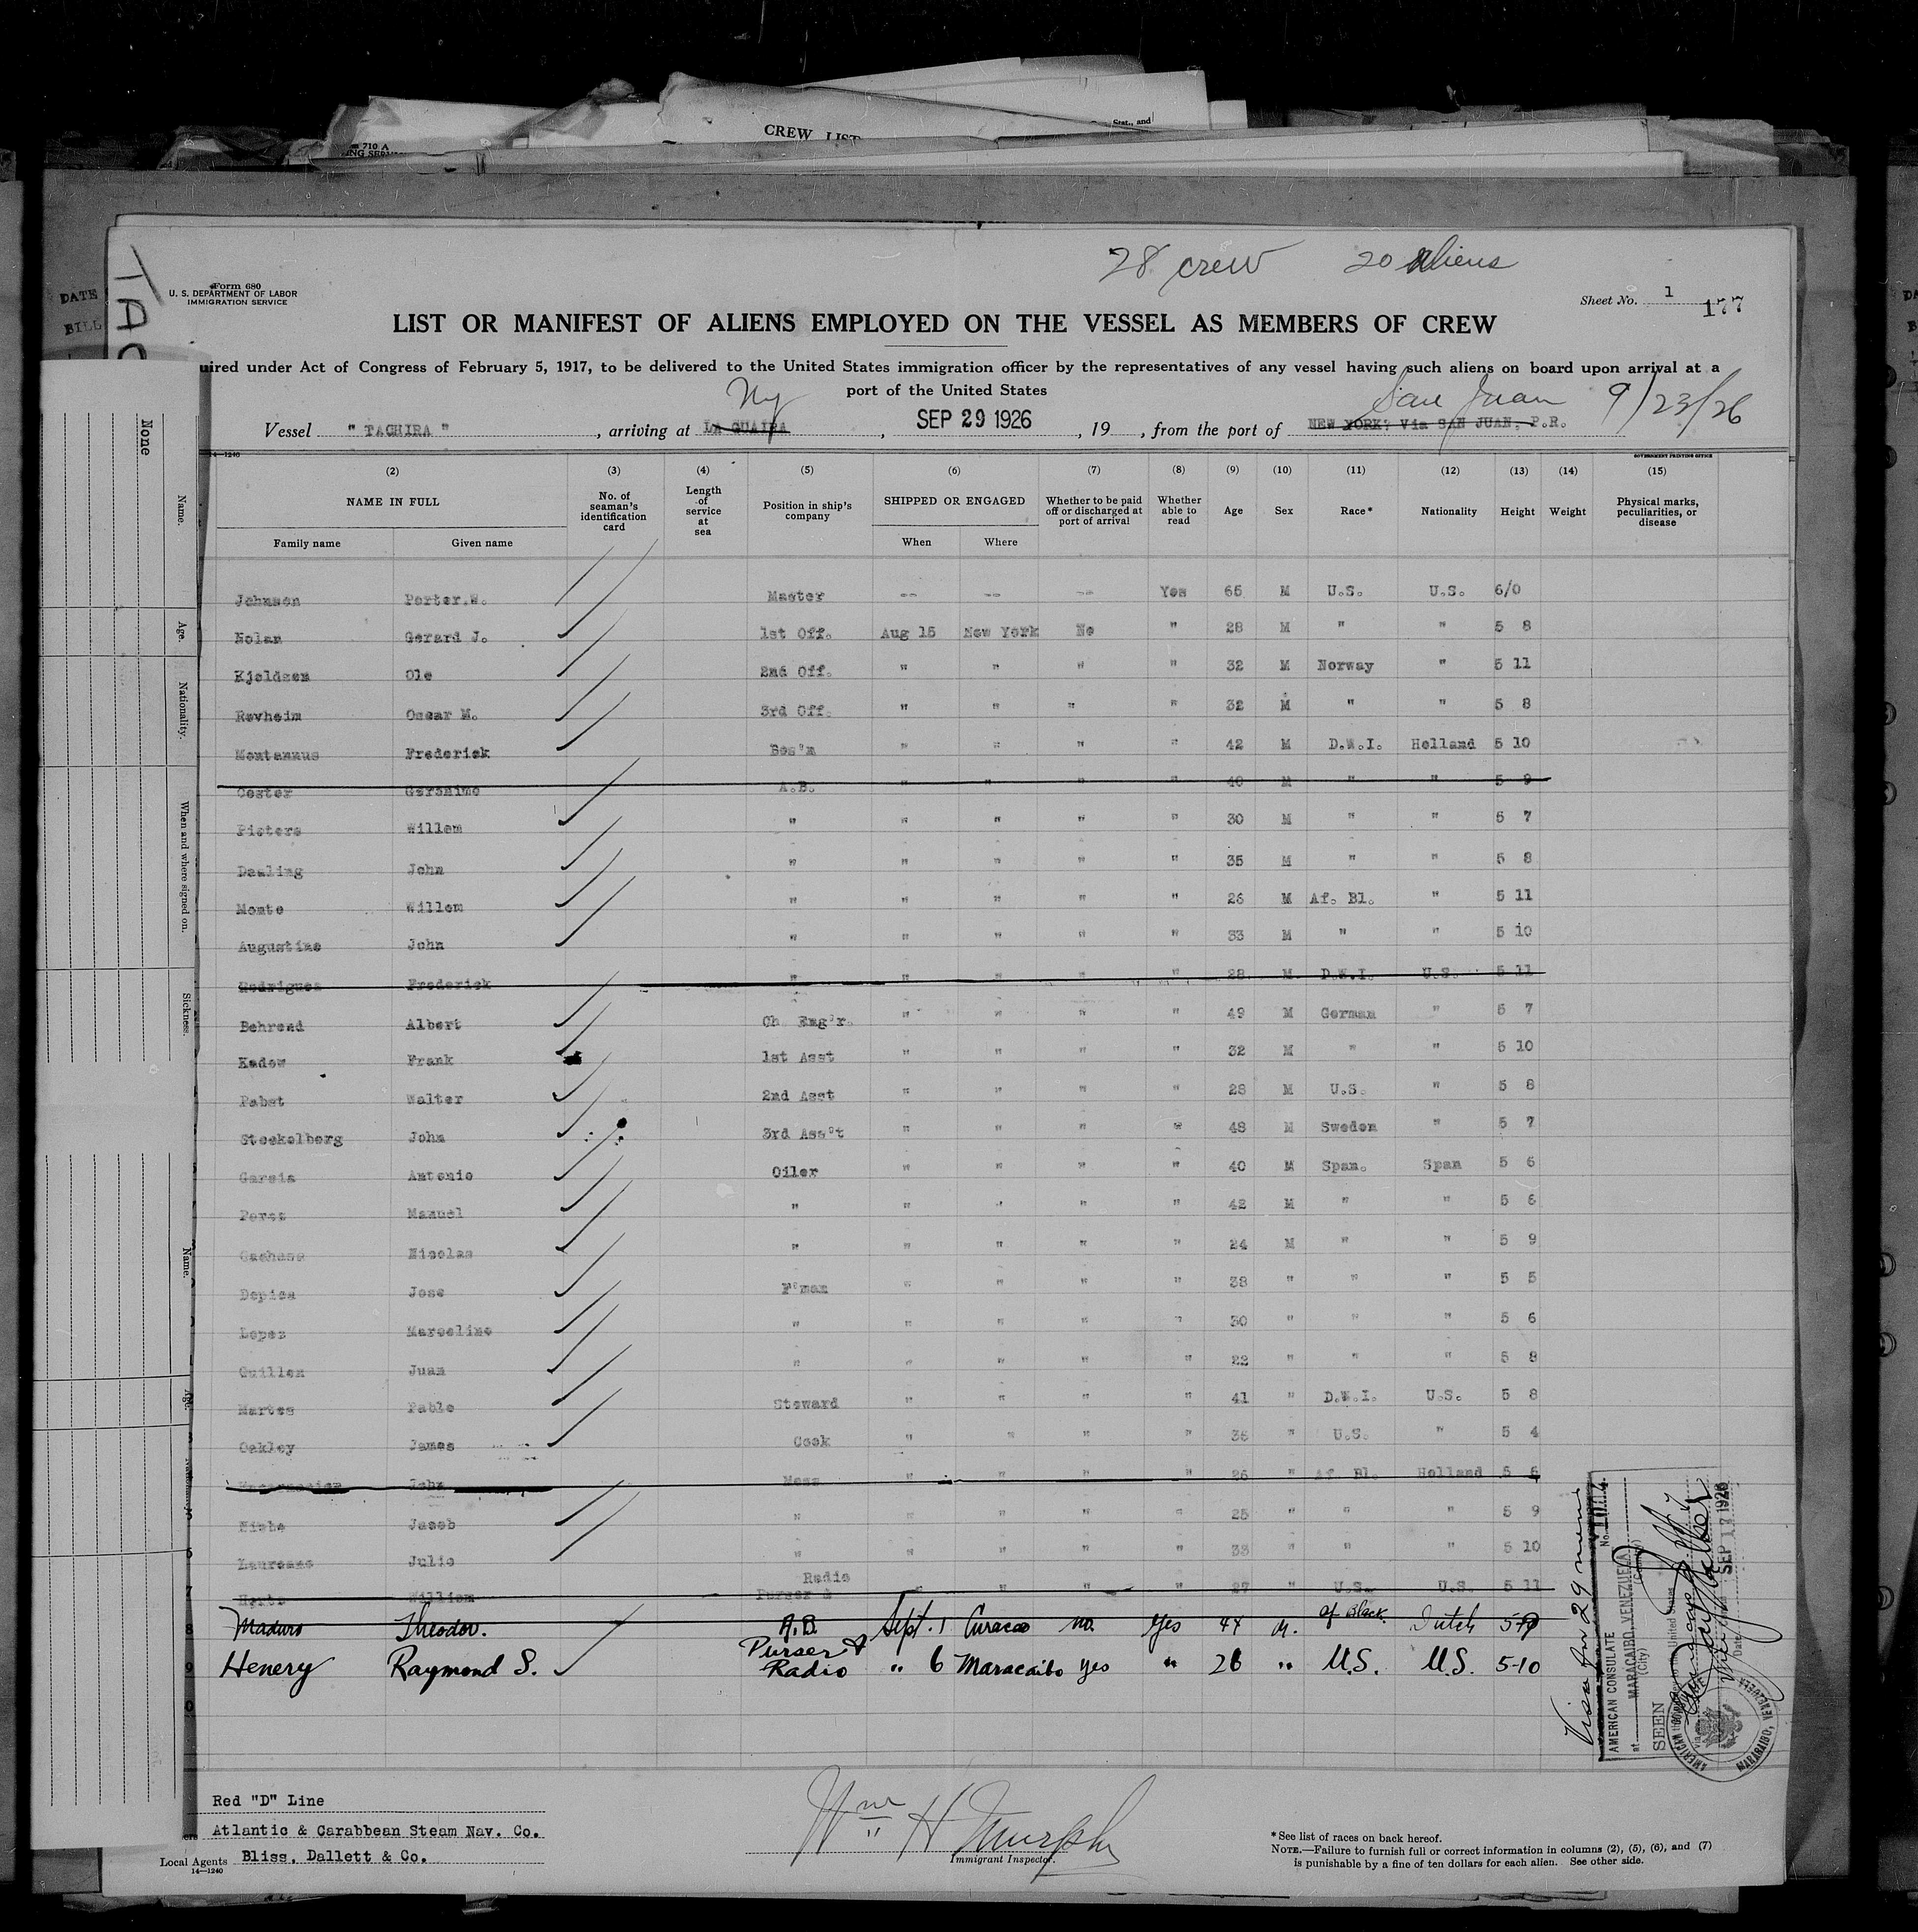 CREW LIST
Stat., and
m 710 A
28 crew 20 Aliens
Form 680
U. S. DEPARTMENT OF LABOR
IMMIGRATION SERVICE
Sheet No. 1
177
TAC
DATE
BILL
LIST OR MANIFEST OF ALIENS EMPLOYED ON THE VESSEL AS MEMBERS OF CREW
uired under Act of Congress of February 5, 1917, to be delivered to the United States immigration officer by the representatives of any vessel having such aliens on board upon arrival at a
port of the United States
Ny San Juan 9/23/26
Vessel " TACHIRA " , arriving at LA GUAIRA , SEP 29 1926 , 19 , from the port of NEW YORK, Via SAN JUAN, P.R.
14—1240
GOVERNMENT PRINTING OFFICE
(2) (3) (4) (5) (6) (7) (8) (9) (10) (11) (12) (13) (14) (15)
NAME IN FULL No. of seaman's identification card Length of service at sea Position in ship's company SHIPPED OR ENGAGED Whether to be paid off or discharged at port of arrival Whether able to read Age Sex Race* Nationality Height Weight Physical marks, peculiarities, or disease
Family name Given name When Where
Johnson Porter.W. Master -- -- -- Yes 65 M U.S. U.S. 6/0
Nolan Gerard J. 1st Off. Aug 15 New York No " 28 M " " 5 8
Kjeldsen Ole 2nd Off. " " " " 32 M Norway " 5 11
Revheim Oscar M. 3rd Off. " " " " 32 M " " 5 8
Montannus Frederick Bos'n " " " " 42 M D.W.I. Holland 5 10
Coster Geronimo A.B. " " " " 40 M " " 5 9
Pieters Willem " " " " " 30 M " " 5 7
Dealing John " " " " " 35 M " " 5 8
Monte Willem " " " " " 26 M Af. Bl. " 5 11
Augustine John " " " " " 33 M " " 5 10
Rodrigues Frederick " " " " " 28 M D.W.I. U.S. 5 11
Behrend Albert Ch Eng'r. " " " " 49 M German " 5 7
Kadow Frank 1st Asst " " " " 32 M " " 5 10
Pabst Walter 2nd Asst " " " " 28 M U.S. " 5 8
Steckelberg John 3rd Ass't " " " " 48 M Sweden " 5 7
Garcia Antonio Oiler " " " " 40 M Span. Span 5 6
Perez Manuel " " " " " 42 M " " 5 6
Nicolas " " " " " 24 M " " 5 9
Depica Jose F'man " " " " 38 " " " 5 5
Lopez Marcelino " " " " " 30 " " " 5 6
Guillen Juan " " " " " 22 " " " 5 8
Martes Pablo Steward " " " " 41 " D.W.I. U.S. 5 8
Oakley James Cook " " " " 35 " U.S. " 5 4
John Mess " " " " 26 " Af. Bl. Holland 5 6
Jacob " " " " " 25 " " " 5 9
Laureano Julio " " " " " 33 " " " 5 10
William Radio Purser & " " " " 27 " U.S. U.S. 5 11
Maduro Theodor. A.B. Sept. 1 Curacao no. Yes 44 m. af Black Dutch 5-9
Henery Raymond S. Purser & Radio " 6 Maracaibo yes " 26 " U.S. U.S. 5-10
None
Name.
Age.
Nationality.
When and where signed on.
Sickness.
Name.
Age.
Visa for 29 men
No. 1004
AMERICAN CONSULATE
at MARACAIBO, VENEZUELA
(City)
SEEN
SEP 17 1926
Date
MARACAIBO, VENEZUELA
Red "D" Line
Atlantic & Carabbean Steam Nav. Co.
Local Agents Bliss, Dallett & Co.
14—1240
Wm H Murphy
Immigrant Inspector.
*See list of races on back hereof.
NOTE.—Failure to furnish full or correct information in columns (2), (5), (6), and (7)
is punishable by a fine of ten dollars for each alien. See other side.